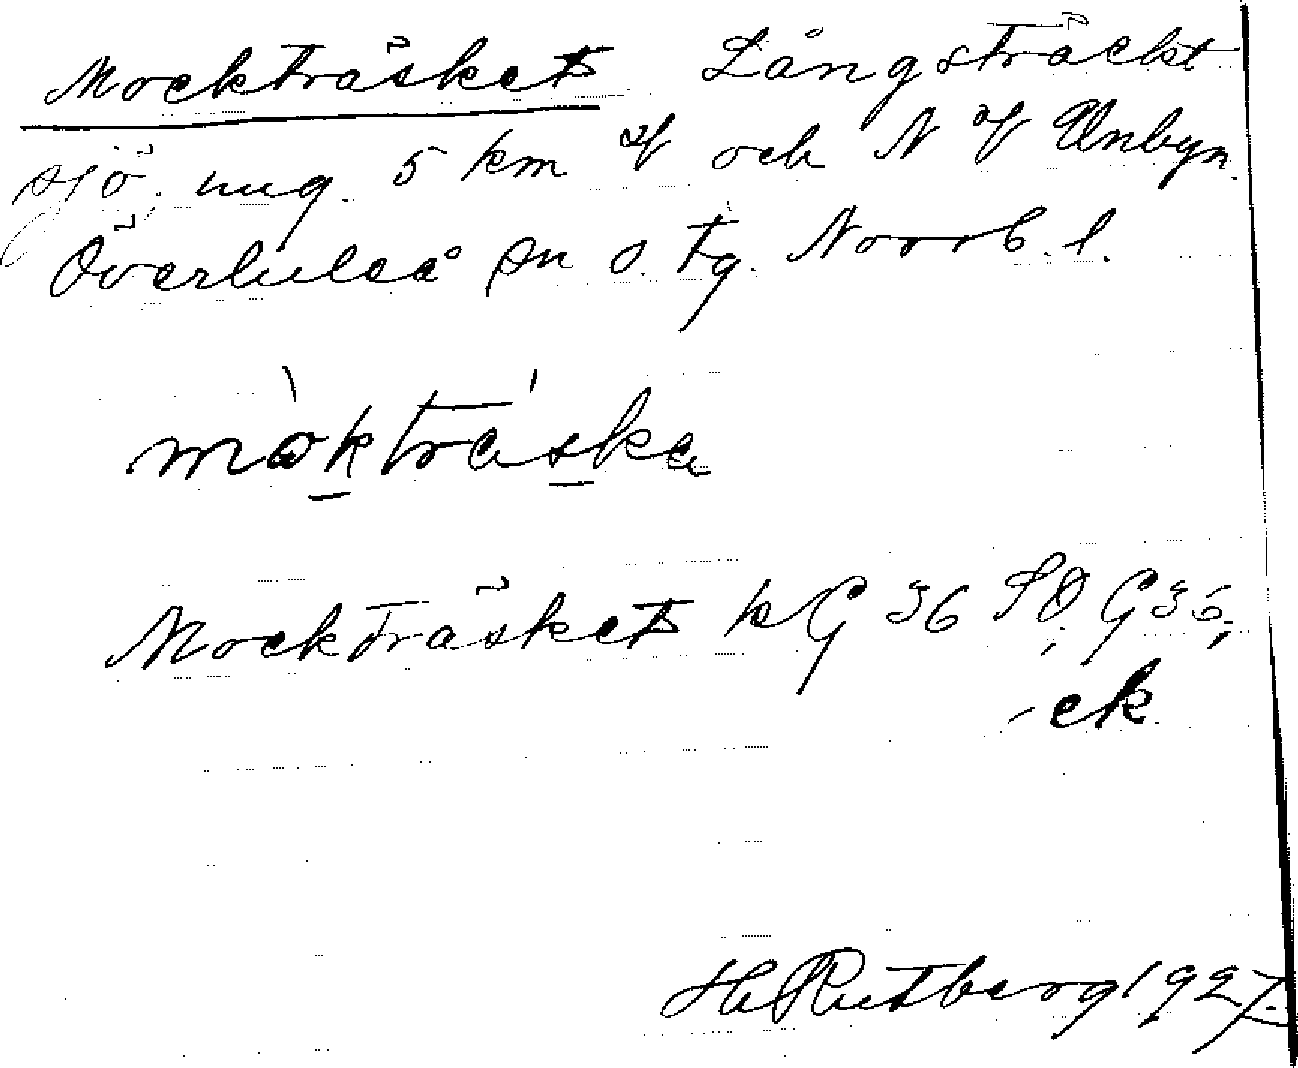 Mockträsket Långsträckt
sjö, ung. 5 km och N Unbyn.
Överluleå sn ö. tg. Norrb. l.
mòkträska
Mockträsket kG 36 SO, G36,
-ck
H Rutberg 1927.